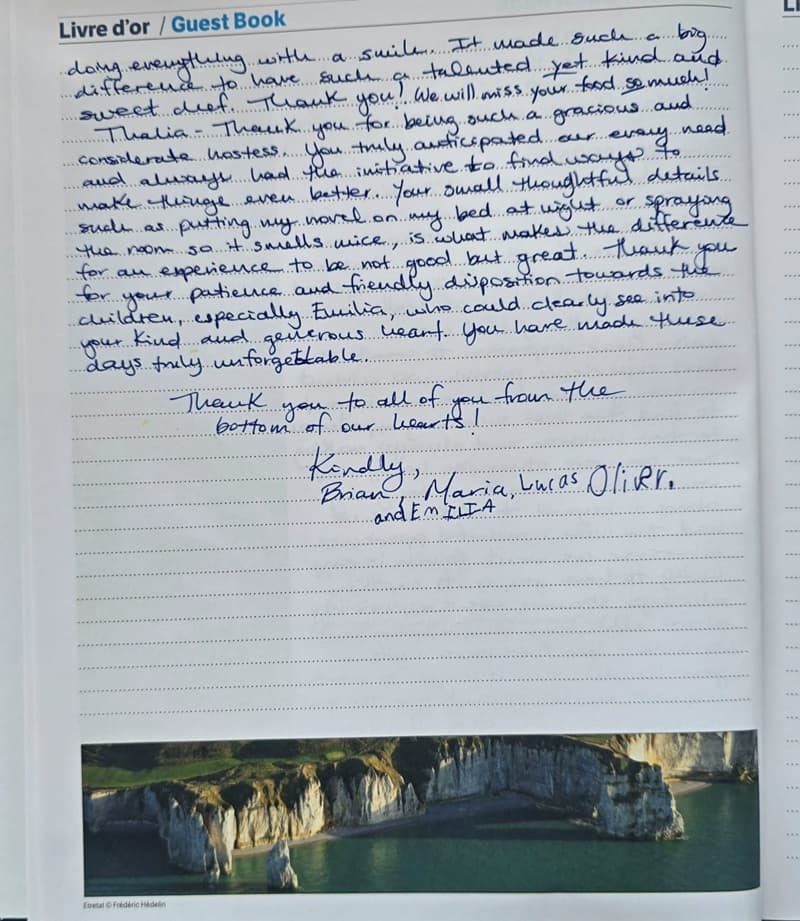 Livre d'or / Guest Book
doing everything with a smile. It made such a big
difference to have such a talented yet kind and
sweet chef. Thank you! We will miss your food so much!
Thalia - Thank you for being such a gracious and
considerate hostess. You truly anticipated our every need
and always had the initiative to find ways to
make things even better. Your small thoughtful details
such as putting my novel on my bed at night or spraying
the room so it smells nice, is what makes the difference
for an experience to be not good but great. Thank you
for your patience and friendly disposition towards the
children, especially Emilia, who could clearly see into
your kind and generous heart. You have made these
days truly unforgettable.
Thank you to all of you from the
bottom of our hearts!
Kindly,
Brian, Maria, Lucas Oliver.
and EMILIA
Etretat © Frédéric Hédelin